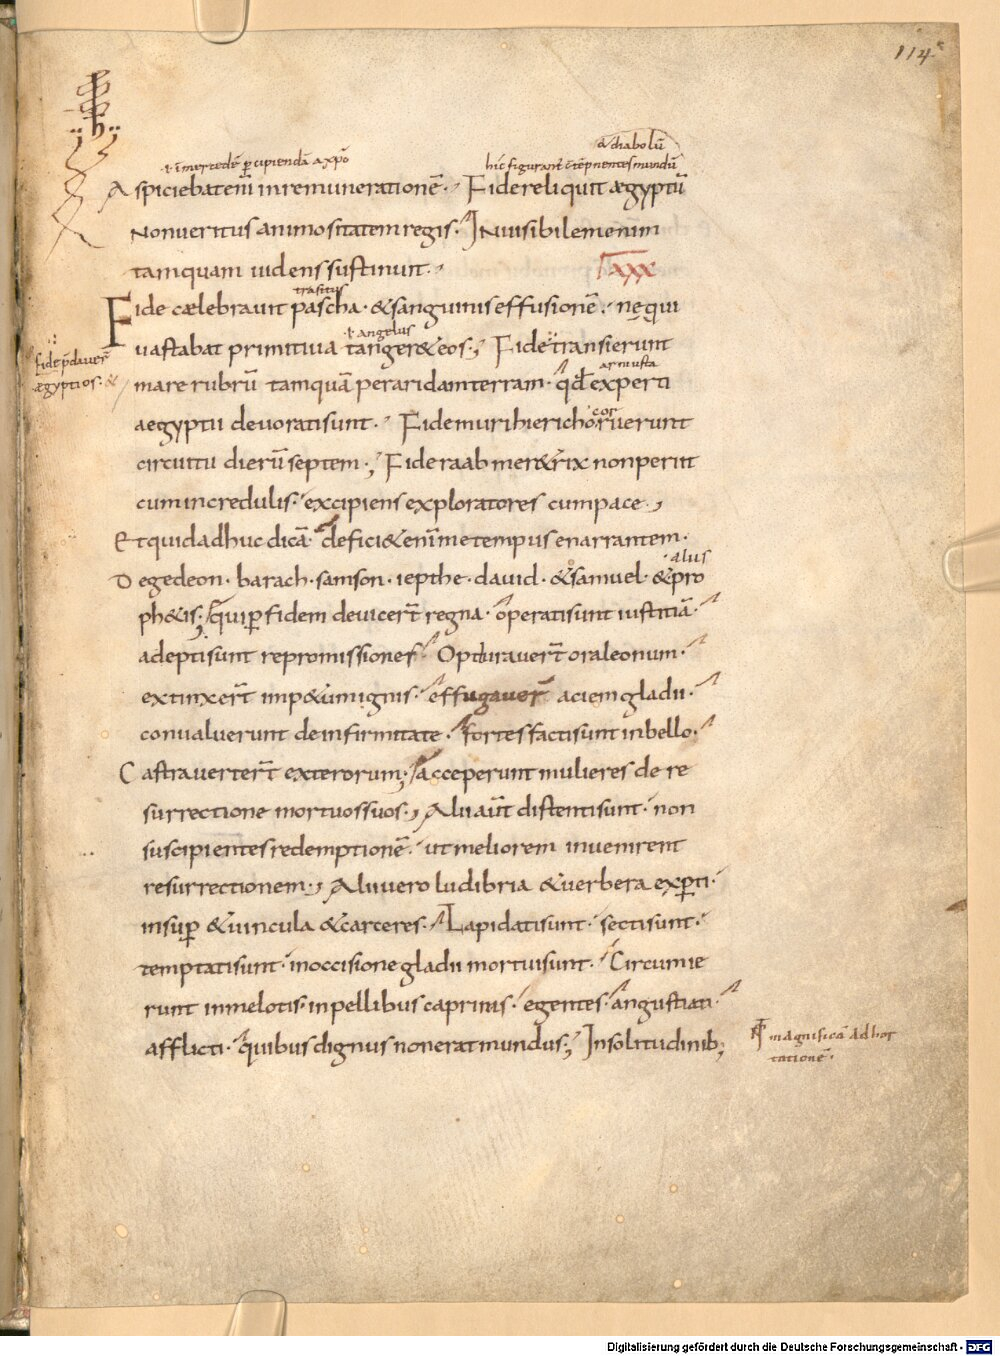 114
a diabolū
.i. in mercedē ꝑcipiendā a xp̄o
hic figurant̄ cōtēpnentes mundū
Aspiciebat enī in remunerationē. Fide reliquit ægyptū
Non ueritus animositatem regis. Inuisibilem enim
tamquam uidens sustinuit.
XXX
transitus
Fide cælebrauit pascha. & sanguinis effusionē. ne qui
.i. angelus
uastabat primitiua tanger& eos; Fide transierunt
fide p̄dauer̄
ægyptios. &
armusta
mare rubrū tamquā per aridam terram. qd̄ experti
aegyptii deuorati sunt. Fide muri hiericho ruerunt
cor
circuitu dierū septem; Fide raab mer&rix non periit
cum incredulis. excipiens exploratores cum pace;
Et quid adhuc dicā. defici& enī me tempus enarrantem.
alus
De gedeon. barach. samson. iepthe. dauid. & samuel. & pro
ph&is; qui ꝑ fidem deuicer̄t regna. operati sunt iustitiā.
adepti sunt repromissiones. Opturauer̄t ora leonum.
extinxer̄t imp&um ignis. effugauer̄ aciem gladii.
conualuerunt de infirmitate. fortes facti sunt in bello.
Castra uerter̄t exterorum; acceperunt mulieres de re
surrectione mortuos suos; Alii aūt distenti sunt. non
suscipientes redemptionē. ut meliorem inuenirent
resurrectionem; Alii uero ludibria & uerbera exꝑti.
insuꝑ & uincula & carceres. Lapidati sunt. secti sunt.
temptati sunt. in occisione gladii mortui sunt. Circumie
runt in melotis. in pellibus caprinis. egentes. angustiati.
afflicti. quibus dignus non erat mundus; In solitudinib;
magnificā adhor
tationē.
Digitalisierung gefördert durch die Deutsche Forschungsgemeinschaft - DFG